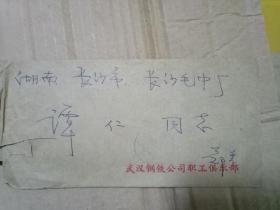 湖南 长沙市 长沙毛中厂
谭 仁 同志
武汉钢铁公司职工俱乐部